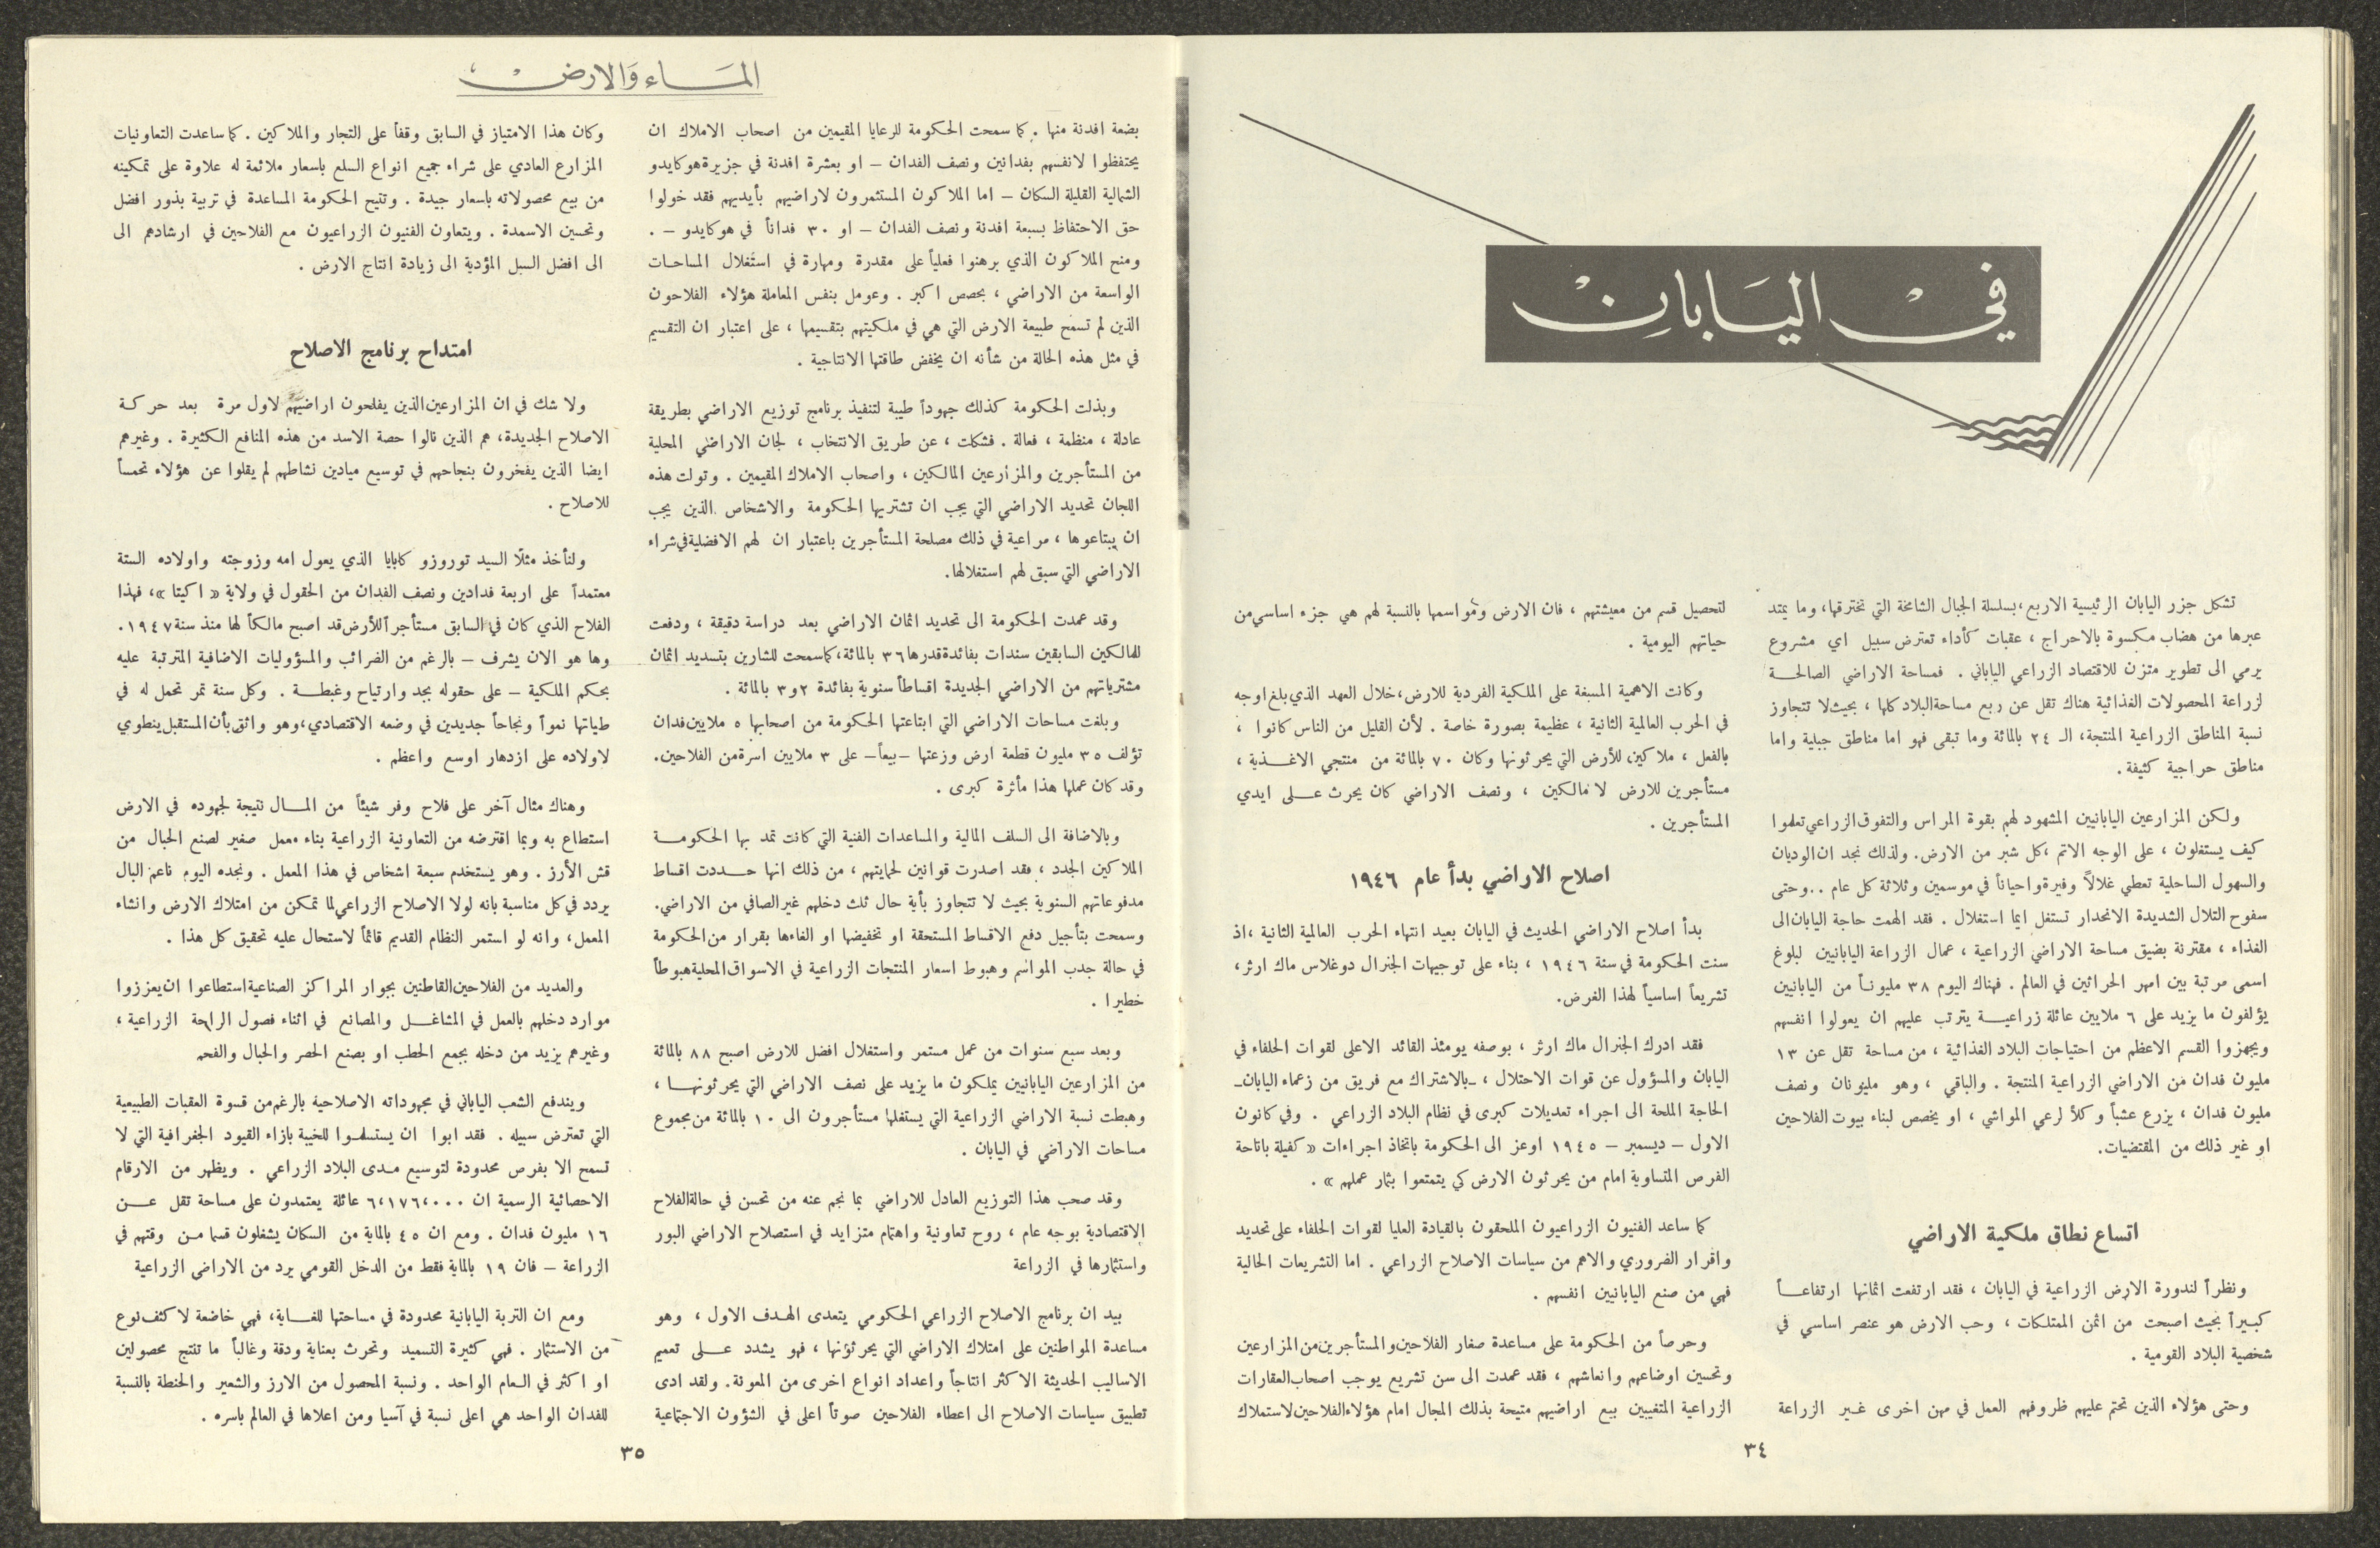 في اليابان
تشكل جزر اليابان الرئيسية الاربع، بسلسلة الجبال الشامخة التي تخترقها، وما يمتد
عبرها من هضاب مكسوة بالاحراج ، عقبات كأداء تعترض سبيل اي مشروع
يرمي الى تطوير متزن للاقتصاد الزراعي الياباني . فمساحة الاراضي الصالحة
لزراعة المحصولات الغذائية هناك تقل عن ربع مساحة البلاد كلها ، بحيث لا تتجاوز
نسبة المناطق الزراعية المنتجة، الـ ٢٤ بالمائة وما تبقى فهو اما مناطق جبلية واما
مناطق حراجية كثيفة .
ولكن المزارعين اليابانيين المشهود لهم بقوة المراس والتفوق الزراعي تعلموا
كيف يستغلون ، على الوجه الاتم ، كل شبر من الارض. ولذلك نجد ان الوديان
والسهول الساحلية تعطي غلالاً وفيرة واحياناً في موسمين وثلاثة كل عام .. وحتى
سفوح التلال الشديدة الانحدار تستغل ايما استغلال . فقد الهمت حاجة اليابان الى
الغذاء ، مقترنة بضيق مساحة الاراضي الزراعية ، عمال الزراعة اليابانيين لبلوغ
اسمى مرتبة بين امهر الحراثين في العالم . فهناك اليوم ٣٨ مليوناً من اليابانيين
يؤلفون ما يزيد على ٦ ملايين عائلة زراعية يترتب عليهم ان يعولوا انفسهم
ويجهزوا القسم الاعظم من احتياجات البلاد الغذائية ، من مساحة تقل عن ١٣
مليون فدان من الاراضي الزراعية المنتجة . والباقي ، وهو مليونان ونصف
مليون فدان ، يزرع عشباً وكلأ لرعي المواشي ، او يخصص لبناء بيوت الفلاحين
او غير ذلك من المقتضيات.
اتساع نطاق ملكية الاراضي
ونظراً لندورة الارض الزراعية في اليابان ، فقد ارتفعت اثمانها ارتفاعاً
كبيراً بحيث اصبحت من اثمن الممتلكات ، وحب الارض هو عنصر اساسي في
شخصية البلاد القومية .
وحتى هؤلاء الذين تحتم عليهم ظروفهم العمل في مهن اخرى غير الزراعة
لتحصيل قسم من معيشتهم ، فان الارض ومواسمها بالنسبة لهم هي جزء اساسي من
حياتهم اليومية .
وكانت الاهمية المسبغة على الملكية الفردية للارض، خلال العهد الذي بلغ اوجه
في الحرب العالمية الثانية ، عظيمة بصورة خاصة . لأن القليل من الناس كانوا ،
بالفعل ، ملاكين، للأرض التي يحرثونها وكان ٧٠ بالمائة من منتجي الاغذية ،
مستأجرين للارض لا مالكين ، ونصف الاراضي كان يحرث على ايدي
المستأجرين .
اصلاح الاراضي بدأ عام ١٩٤٦
بدأ اصلاح الاراضي الحديث في اليابان بعيد انتهاء الحرب العالمية الثانية ، اذ
سنت الحكومة في سنة ١٩٤٦ ، بناء على توجيهات الجنرال دوغلاس ماك ارثر،
تشريعاً اساسياً لهذا الغرض.
فقد ادرك الجنرال ماك ارثر ، بوصفه يومئذ القائد الاعلى لقوات الحلفاء في
اليابان والمسؤول عن قوات الاحتلال ، ـ بالاشتراك مع فريق من زعماء اليابان ـ
الحاجة الملحة الى اجراء تعديلات كبرى في نظام البلاد الزراعي . وفي كانون
الاول – ديسمبر – ١٩٤٥ اوعز الى الحكومة باتخاذ اجراءات « كفيلة باتاحة
الفرص المتساوية امام من يحرثون الارض كي يتمتعوا بثمار عملهم » .
كما ساعد الفنيون الزراعيون الملحقون بالقيادة العليا لقوات الحلفاء على تحديد
واقرار الضروري والاهم من سياسات الاصلاح الزراعي . اما التشريعات الحالية
فهي من صنع اليابانيين انفسهم .
وحرصاً من الحكومة على مساعدة صغار الفلاحين والمستأجرين من المزارعين
وتحسين اوضاعهم وانعاشهم ، فقد عمدت الى سن تشريع يوجب اصحاب العقارات
الزراعية المتغيبين بيع اراضيهم متيحة بذلك المجال امام هؤلاء الفلاحين لاستملاك
٣٤
الماء والارض
بضعة افدنة منها . كما سمحت الحكومة للرعايا المقيمين من اصحاب الاملاك ان
يحتفظوا لانفسهم بفدانين ونصف الفدان – او بعشرة افدنة في جزيرة هوكايدو
الشمالية القليلة السكان – اما الملاكون المستثمرون لاراضيهم بأيديهم فقد خولوا
حق الاحتفاظ بسبعة افدنة ونصف الفدان – او ٣٠ فداناً في هوكايدو – .
ومنح الملاكون الذي برهنوا فعلياً على مقدرة ومهارة في استغلال المساحات
الواسعة من الاراضي ، بحصص اكبر . وعومل بنفس المعاملة هؤلاء الفلاحون
الذين لم تسمح طبيعة الارض التي هي في ملكيتهم بتقسيمها ، على اعتبار ان التقسيم
في مثل هذه الحالة من شأنه ان يخفض طاقتها الانتاجية .
وبذلت الحكومة كذلك جهوداً طيبة لتنفيذ برنامج توزيع الاراضي بطريقة
عادلة ، منظمة ، فعالة . فشكلت ، عن طريق الانتخاب ، لجان الاراضي المحلية
من المستأجرين والمزارعين المالكين ، واصحاب الاملاك المقيمين . وتولت هذه
اللجان تحديد الاراضي التي يجب ان تشتريها الحكومة والاشخاص الذين يجب
ان يبتاعوها ، مراعية في ذلك مصلحة المستأجرين باعتبار ان لهم الافضلية في شراء
الاراضي التي سبق لهم استغلالها.
وقد عمدت الحكومة الى تحديد اثمان الاراضي بعد دراسة دقيقة ، ودفعت
للمالكين السابقين سندات بفائدة قدرها ٣٦ بالمائة، كما سمحت للشارين بتسديد اثمان
مشترياتهم من الاراضي الجديدة اقساطاً سنوية بفائدة ٢و٣ بالمائة .
وبلغت مساحات الاراضي التي ابتاعتها الحكومة من اصحابها ٥ ملايين فدان
تؤلف ٣٥ مليون قطعة ارض وزعتها – بيعاً – على ٣ ملايين اسرة من الفلاحين.
وقد كان عملها هذا مأثرة كبرى .
وبالاضافة الى السلف المالية والمساعدات الفنية التي كانت تمد بها الحكومة
الملاكين الجدد ، فقد اصدرت قوانين لحمايتهم ، من ذلك انها حددت اقساط
مدفوعاتهم السنوية بحيث لا تتجاوز بأية حال ثلث دخلهم غير الصافي من الاراضي.
وسمحت بتأجيل دفع الاقساط المستحقة او تخفيضها او الغاءها بقرار من الحكومة
في حالة جدب المواسم وهبوط اسعار المنتجات الزراعية في الاسواق المحلية هبوطاً
خطيرا .
وبعد سبع سنوات من عمل مستمر واستغلال افضل للارض اصبح ٨٨ بالمائة
من المزارعين اليابانيين يملكون ما يزيد على نصف الاراضي التي يحرثونها ،
وهبطت نسبة الاراضي الزراعية التي يستغلها مستأجرون الى ١٠ بالمائة من مجموع
مساحات الاراضي في اليابان .
وقد صحب هذا التوزيع العادل للاراضي بما نجم عنه من تحسن في حالة الفلاح
الاقتصادية بوجه عام ، روح تعاونية واهتمام متزايد في استصلاح الاراضي البور
واستثمارها في الزراعة
بيد ان برنامج الاصلاح الزراعي الحكومي يتعدى الهدف الاول ، وهو
مساعدة المواطنين على امتلاك الاراضي التي يحرثونها ، فهو يشدد على تعميم
الاساليب الحديثة الاكثر انتاجاً واعداد انواع اخرى من المعونة. ولقد ادى
تطبيق سياسات الاصلاح الى اعطاء الفلاحين صوتاً اعلى في الشؤون الاجتماعية
وكان هذا الامتياز في السابق وقفاً على التجار والملاكين . كما ساعدت التعاونيات
المزارع العادي على شراء جميع انواع السلع باسعار ملائمة له علاوة على تمكينه
من بيع محصولاته باسعار جيدة . وتتيح الحكومة المساعدة في تربية بذور افضل
وتحسين الاسمدة . ويتعاون الفنيون الزراعيون مع الفلاحين في ارشادهم الى
الى افضل السبل المؤدية الى زيادة انتاج الارض .
امتداح برنامج الاصلاح
ولا شك في ان المزارعين الذين يفلحون اراضيهم لاول مرة بعد حركة
الاصلاح الجديدة، هم الذين نالوا حصة الاسد من هذه المنافع الكثيرة . وغيرهم
ايضا الذين يفخرون بنجاحهم في توسيع ميادين نشاطهم لم يقلوا عن هؤلاء تحمساً
للاصلاح .
ولنأخذ مثلًا السيد توروزو كابايا الذي يعول امه وزوجته واولاده الستة
معتمداً على اربعة فدادين ونصف الفدان من الحقول في ولاية « اكيتا »، فهذا
الفلاح الذي كان في السابق مستأجراً للأرض قد اصبح مالكاً لها منذ سنة ١٩٤٧.
وها هو الان يشرف – بالرغم من الضرائب والمسؤوليات الاضافية المترتبة عليه
بحكم الملكية – على حقوله بجد وارتياح وغبطة . وكل سنة تمر تحمل له في
طياتها نمواً ونجاحاً جديدين في وضعه الاقتصادي، وهو واثق بأن المستقبل ينطوي
لاولاده على ازدهار اوسع واعظم .
وهناك مثال آخر على فلاح وفر شيئاً من المال نتيجة لجهوده في الارض
استطاع به وبما اقترضه من التعاونية الزراعية بناء معمل صغير لصنع الحبال من
قش الأرز . وهو يستخدم سبعة اشخاص في هذا المعمل . ونجده اليوم ناعم البال
يردد في كل مناسبة بانه لولا الاصلاح الزراعي لما تمكن من امتلاك الارض وانشاء
المعمل، وانه لو استمر النظام القديم قائماً لاستحال عليه تحقيق كل هذا .
والعديد من الفلاحين القاطنين بجوار المراكز الصناعية استطاعوا ان يعززوا
موارد دخلهم بالعمل في المشاغل والمصانع في اثناء فصول الراحة الزراعية ،
وغيرهم يزيد من دخله بجمع الحطب او بصنع الحصر والحبال والفحم
ويندفع الشعب الياباني في مجهوداته الاصلاحية بالرغم من قسوة العقبات الطبيعية
التي تعترض سبيله . فقد ابوا ان يستسلموا للخيبة بازاء القيود الجغرافية التي لا
تسمح الا بفرص محدودة لتوسيع مدى البلاد الزراعي . ويظهر من الارقام
الاحصائية الرسمية ان ٦،١٧٦،٠٠٠ عائلة يعتمدون على مساحة تقل عن
١٦ مليون فدان . ومع ان ٤٥ بالماية من السكان يشغلون قسما من وقتهم في
الزراعة – فان ١٩ بالماية فقط من الدخل القومي يرد من الاراضي الزراعية
ومع ان التربة اليابانية محدودة في مساحتها للغاية، فهي خاضعة لاكثف نوع
من الاستثمار . فهي كثيرة التسميد وتحرث بعناية ودقة وغالباً ما تنتج محصولين
او اكثر في العام الواحد . ونسبة المحصول من الارز والشعير والحنطة بالنسبة
للفدان الواحد هي اعلى نسبة في آسيا ومن اعلاها في العالم باسره .
٣٥